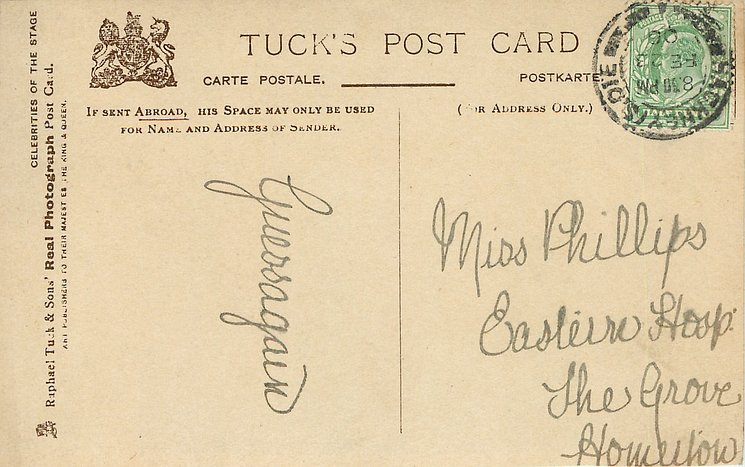 TUCK'S POST CARD
CARTE POSTALE.
POSTKARTE
IF SENT ABROAD, HIS SPACE MAY ONLY BE USED
FOR NAME AND ADDRESS OF SENDER.
(FOR ADDRESS ONLY.)
CELEBRITIES OF THE STAGE
Raphael Tuck & Sons' Real Photograph Post Card.
ART PUBLISHERS TO THEIR MAJESTIES THE KING & QUEEN.
8.30 PM
FE 23
06
HALF PENNY
Guess again
Miss Phillips
Eastern Hosp.
The Grove
Homerton